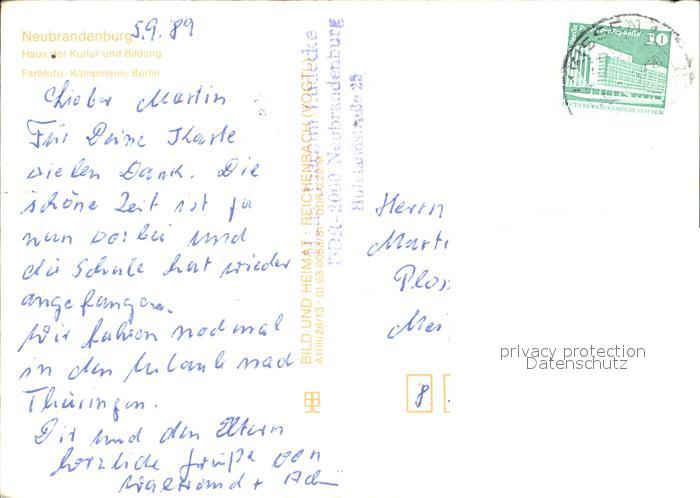 Neubrandenburg
Haus der Kultur und Bildung
Farbfoto: Kampmann, Berlin
5.9.89
Lieber Martin
Für Deine Karte
vielen Dank. Die
schöne Zeit ist ja
nun vorbei und
die Schule hat wieder
angefangen.
Wir fahren nochmal
in den Urlaub nach
Thüringen.
Dir und den Eltern
herzliche Grüße von
BILD UND HEIMAT · REICHENBACH (VOGTL)
A1/III/26/13
DDR-2000 Neubrandenburg
Hufelandstraße 25
10
Herrn
Marti
Plos
Mei
8
privacy protection
Datenschutz